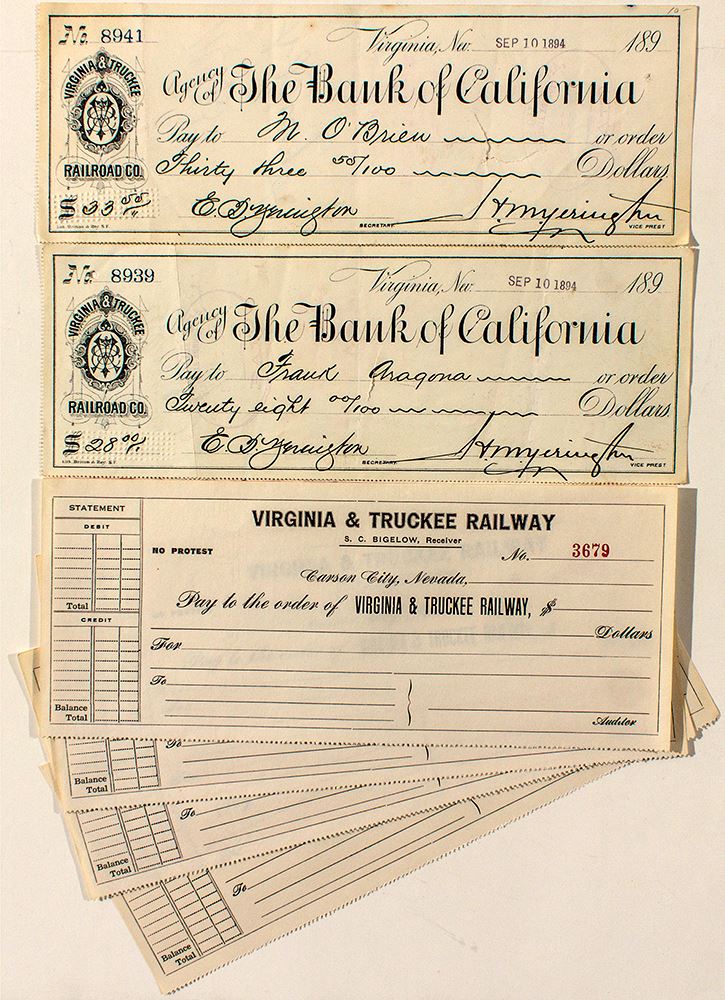 10-
No. 8941
Virginia, Nev. SEP 10 1894 189
VIRGINIA & TRUCKEE
RAILROAD CO.
Agency of The Bank of California
Pay to M. O'Brien or order
Thirty three 55/100 Dollars
$ 33 55/
E. B. Yerington
SECRETARY.
H M Yerington
VICE PREST
No. 8939
Virginia, Nev. SEP 10 1894 189
VIRGINIA & TRUCKEE
RAILROAD CO.
Agency of The Bank of California
Pay to Frank Aragona or order
Twenty eight 00/100 Dollars.
$ 28 00/
E. B. Yerington
SECRETARY.
H M Yerington
VICE PREST
STATEMENT
DEBIT
Total
CREDIT
Balance
Total
VIRGINIA & TRUCKEE RAILWAY
S. C. BIGELOW, Receiver
NO PROTEST
No. 3679
Carson City, Nevada,
Pay to the order of VIRGINIA & TRUCKEE RAILWAY, $
Dollars
For
To
Auditor
To
Balance
Total
To
Balance
Total
To
Balance
Total